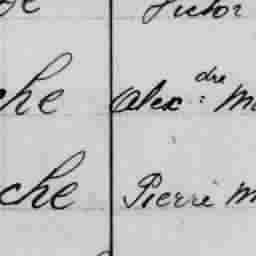 Victor
che Alex:dre M
che Pierre M